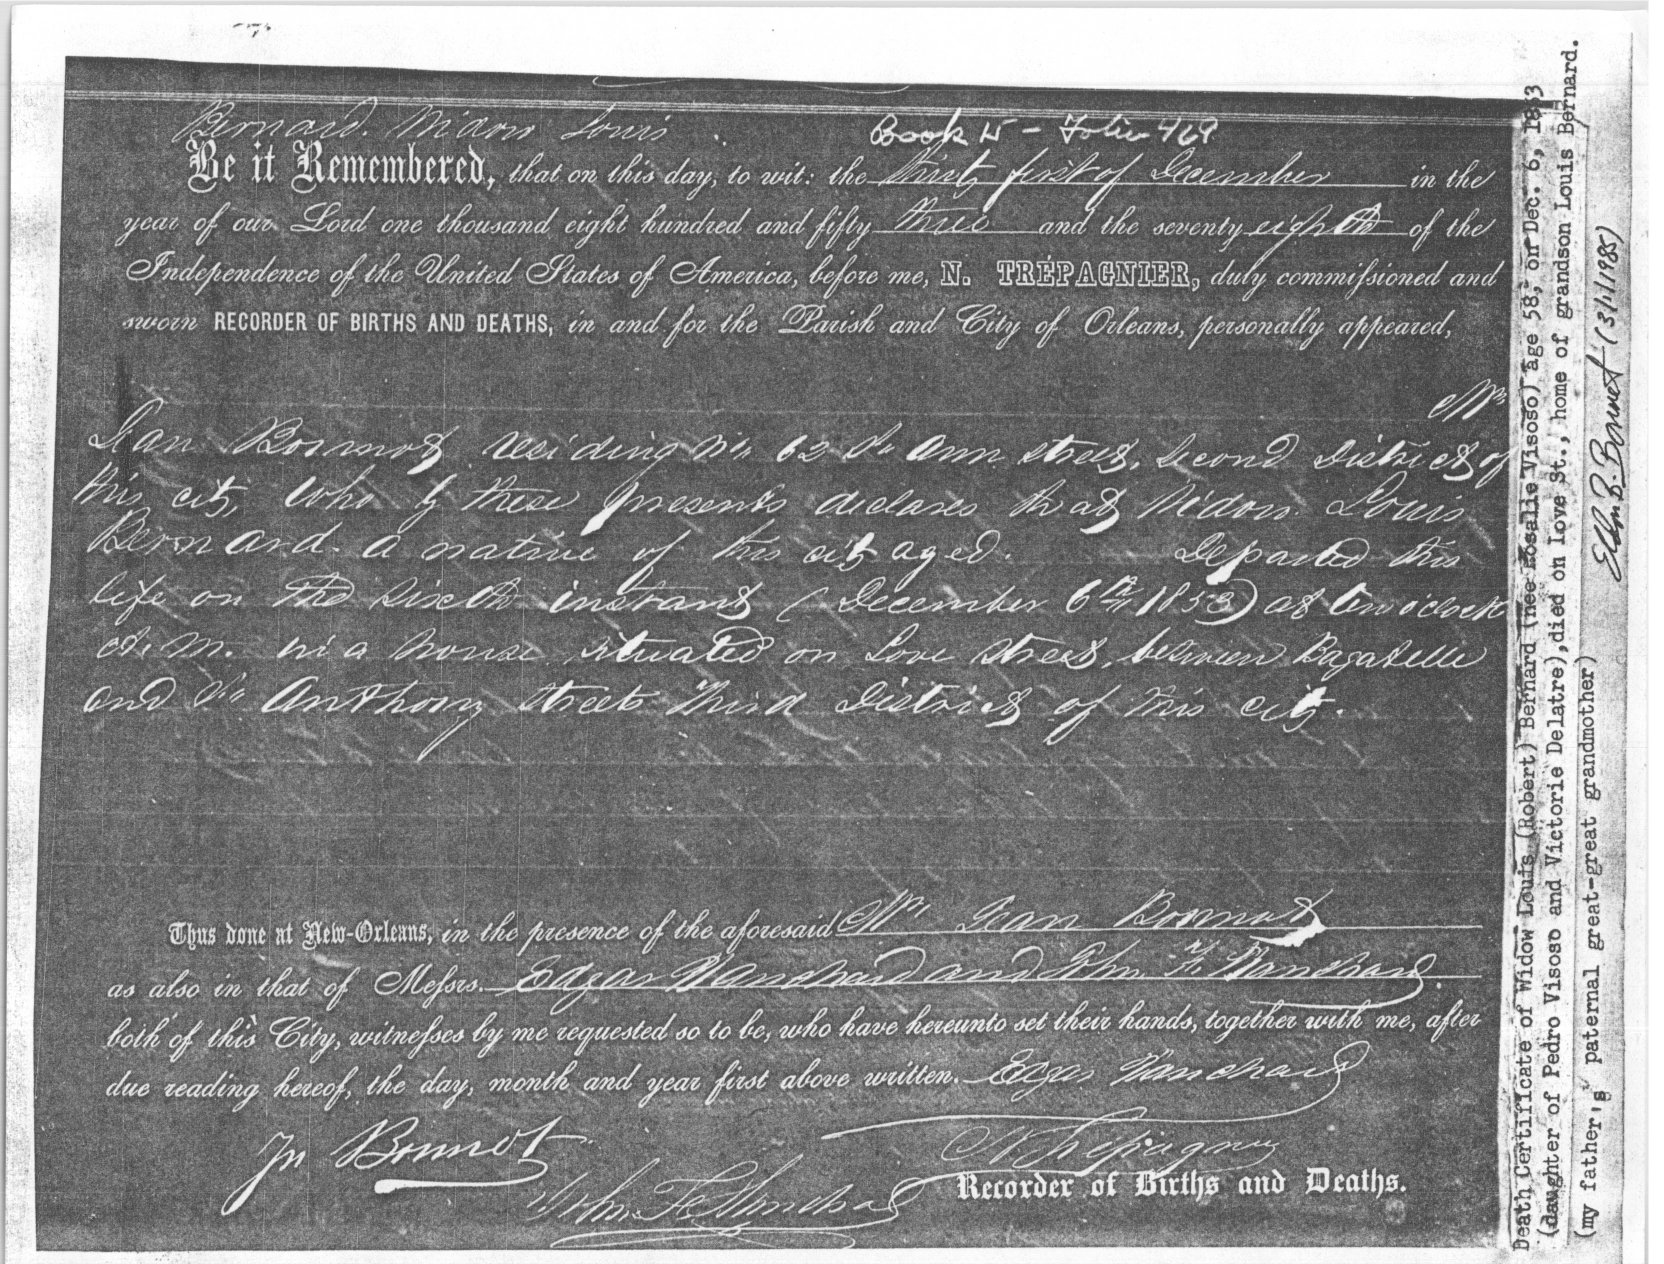 Bernard. Widow Louis
Book 15 - Folio 469
Be it Remembered, that on this day, to wit: the thirty first of December in the
year of our Lord one thousand eight hundred and fifty three and the seventy eighth of the
Independence of the United States of America, before me, N. TRÉPAGNIER, duly commissioned and
sworn RECORDER OF BIRTHS AND DEATHS, in and for the Parish and City of Orleans, personally appeared,
Mr
Jean Bonnot residing No 62 St Ann street, Second District of
this city, who by these presents declares that Widow Louis
Bernard a native of this city aged. Departed this
life on the sixth instant (December 6th 1853) at ten o'clock
A. M. in a house situated on Love street, between Bagatelle
and St Anthony streets Third District of this city.
Thus done at New-Orleans, in the presence of the aforesaid Mr Jean Bonnot
as also in that of Messrs. Edgar Blanchard and John F. Blanchard
both of this City, witnesses by me requested so to be, who have hereunto set their hands, together with me, after
due reading hereof, the day, month and year first above written. Edgar Blanchard
Jn Bonnot
N Trépagnier
John F Blanchard
Recorder of Births and Deaths.
Death Certificate of Widow Louis (Robert) Bernard (nee Rosalie Visoso) age 58, on Dec. 6, 1853
(daughter of Pedro Visoso and Victorie Delatre), died on Love St., home of grandson Louis Bernard.
(my father's paternal great-great grandmother)
B. Bonnet (3/1/1985)